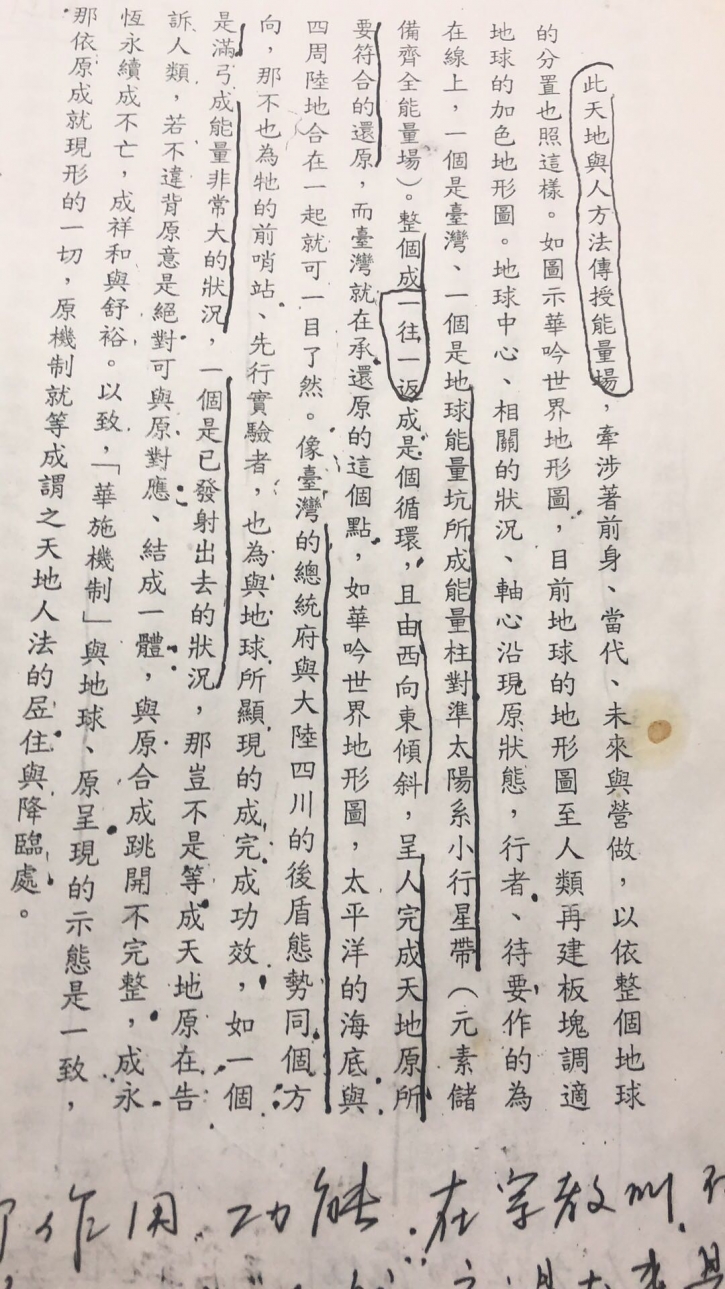 此天地與人方法傳授能量場，牽涉著前身、當代、未來與營做，以依整個地球
的分置也照這樣。如圖示華吟世界地形圖，目前地球的地形圖至人類再建板塊調適
地球的加色地形圖。地球中心、相關的狀況、軸心沿現原狀態，行者、待要作的為
在線上，一個是臺灣、一個是地球能量坑所成能量柱對準太陽系小行星帶（元素儲
備齊全能量場）。整個成一往一返成是個循環，且由西向東傾斜，呈人完成天地原所
要符合的還原，而臺灣就在承還原的這個點，如華吟世界地形圖，太平洋的海底與
四周陸地合在一起就可一目了然。像臺灣的總統府與大陸四川的後盾態勢同個方
向，那不也為牠的前哨站、先行實驗者，也為與地球所顯現的成完成功效，如一個
是滿弓成能量非常大的狀況，一個是已發射出去的狀況，那豈不是等成天地原在告
訴人類，若不違背原意是絕對可與原對應、結成一體，與原合成跳開不完整，成永
恆永續成不亡，成祥和與舒裕。以致，「華施機制」與地球、原呈現的示態是一致，
那依原成就現形的一切，原機制就等成謂之天地人法的居住與降臨處。
作用、功能.在宗教叫.